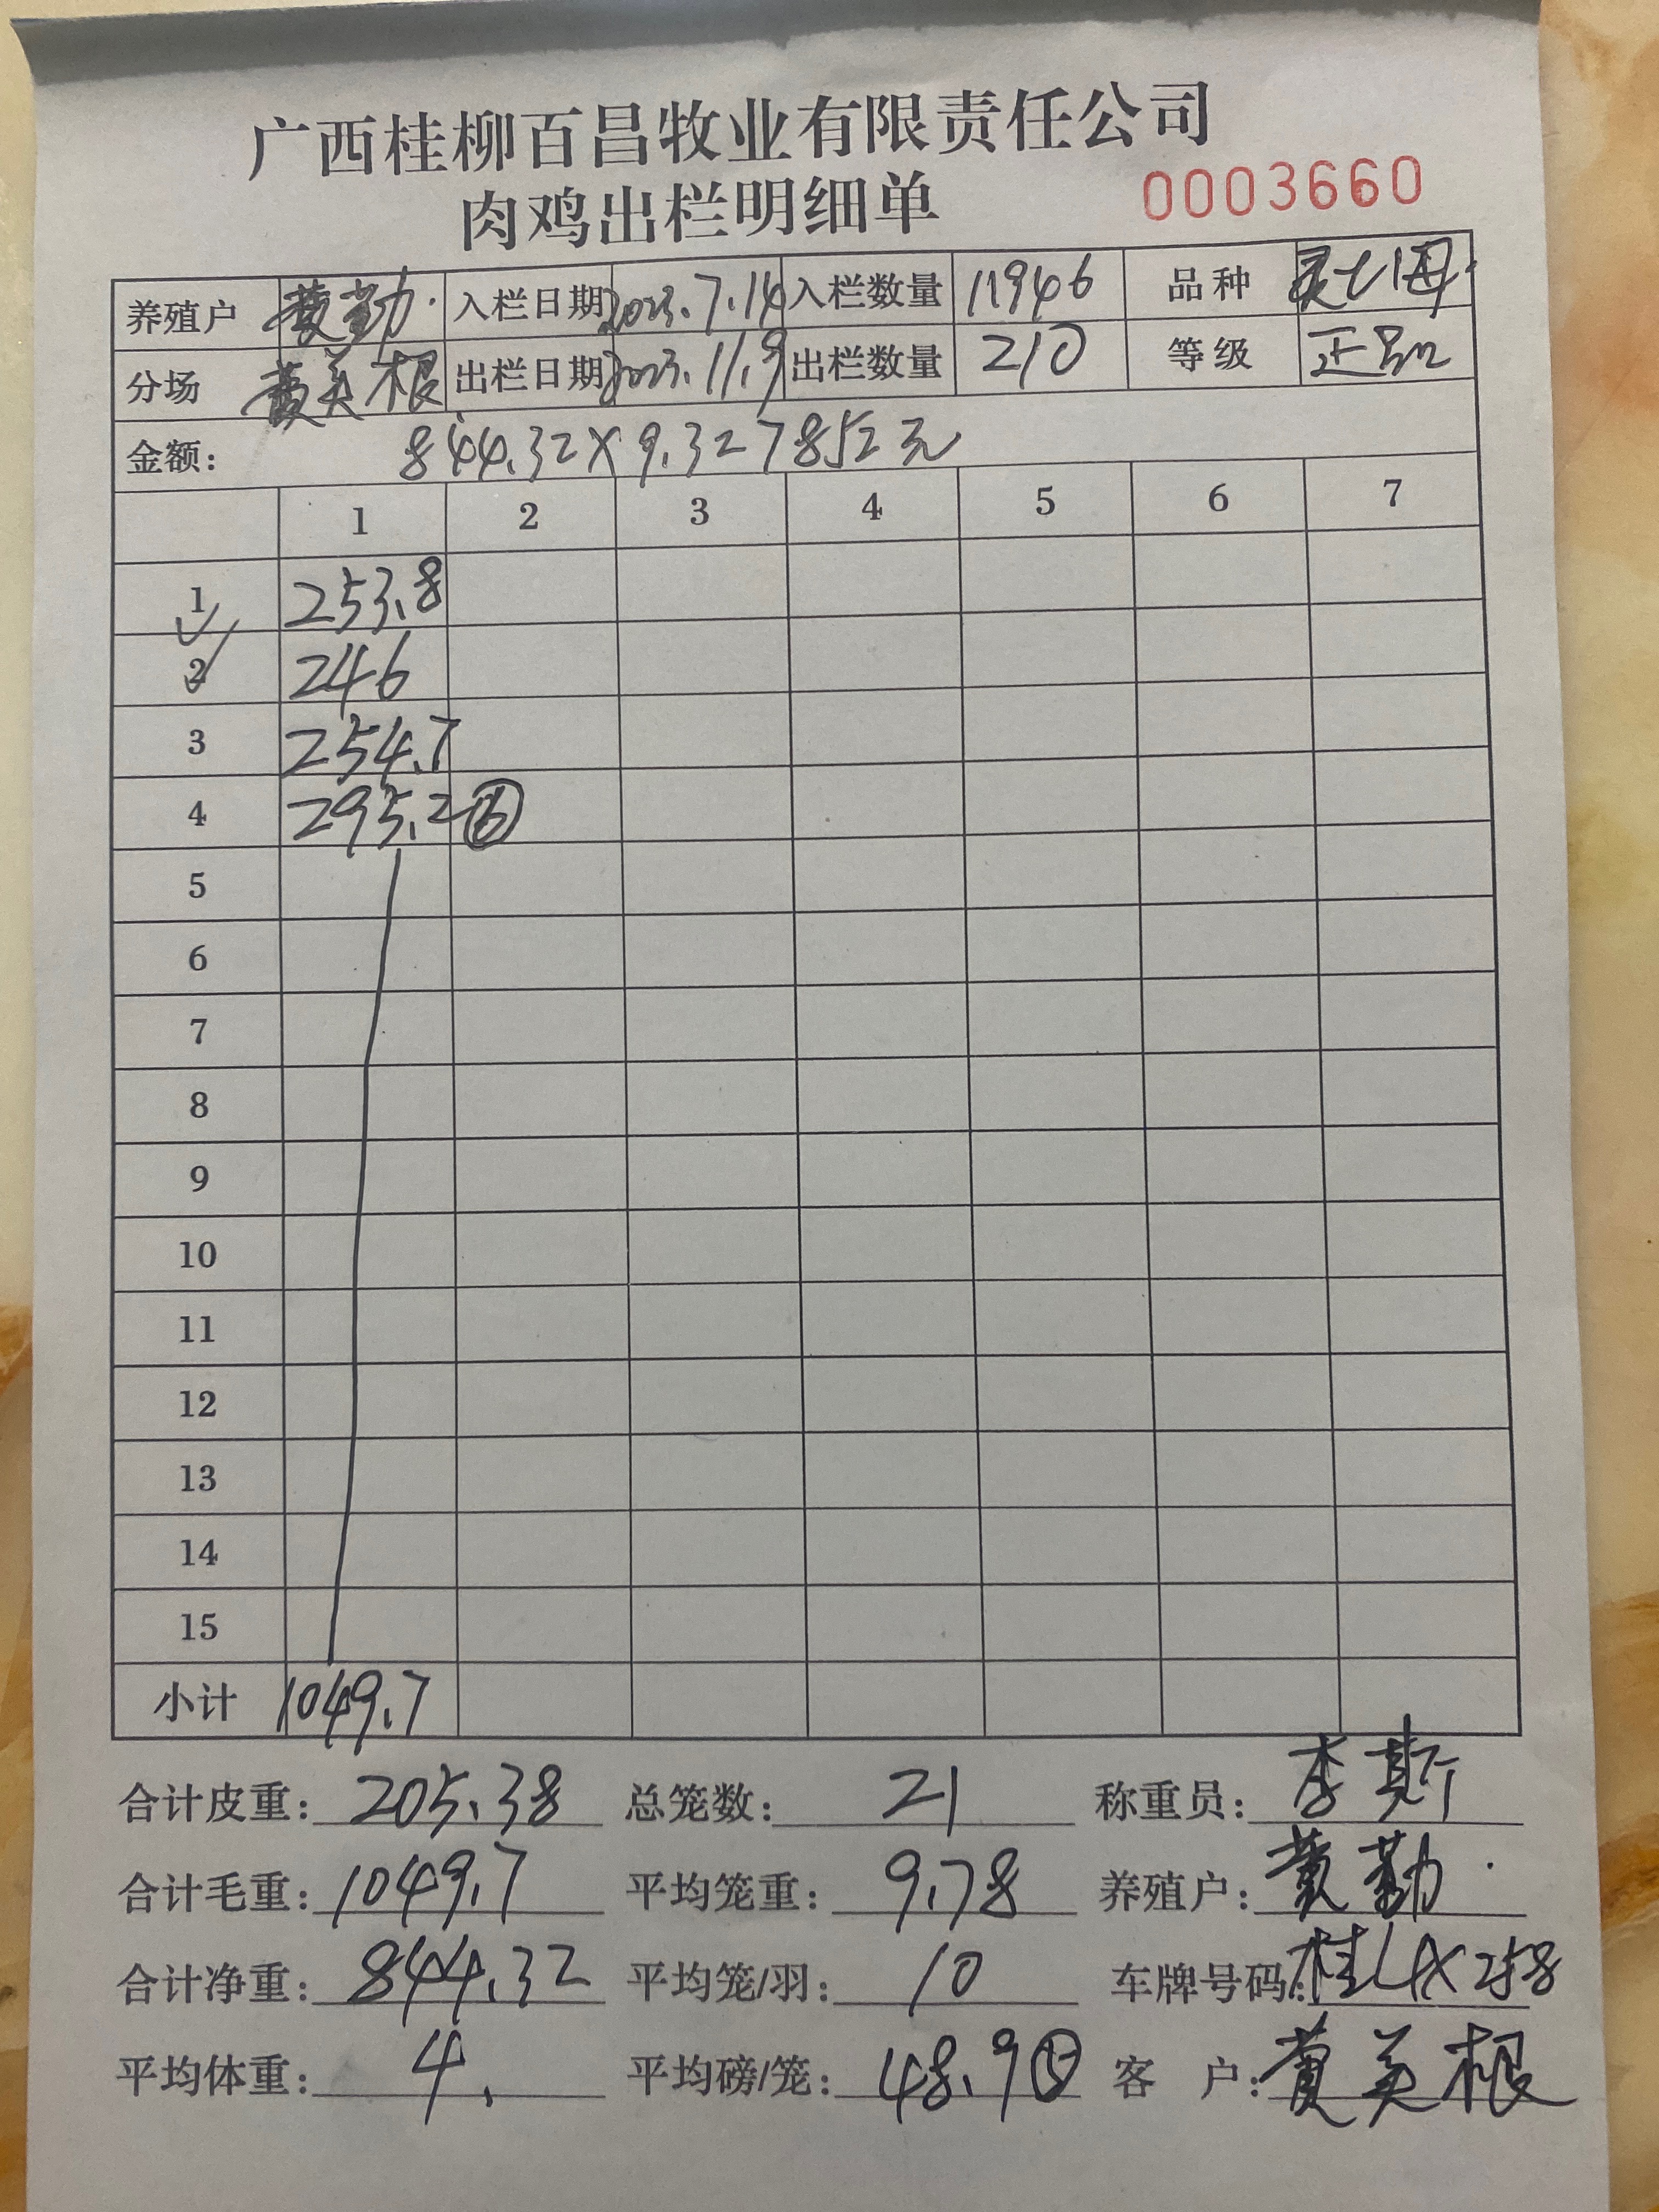 广西桂柳百昌牧业有限责任公司
肉鸡出栏明细单 0003660
养殖户 黄勤 入栏日期 2023.7.14 入栏数量 11946 品种
分场 黄美根 出栏日期 2023.11.9 出栏数量 210 等级 正品
金额: 844.32×9.3=7852元
1 2 3 4 5 6 7
1 253.8
2 246
3 254.7
4 295.2 ⑥
5
6
7
8
9
10
11
12
13
14
15
小计 1049.7
合计皮重: 205.38 总笼数: 21 称重员: 李斯
合计毛重: 1049.7 平均笼重: 9.78 养殖户: 黄勤
合计净重: 844.32 平均笼/羽: 10 车牌号码: 桂L4X258
平均体重: 4. 平均磅/笼: 48.9⑤ 客户: 黄美根